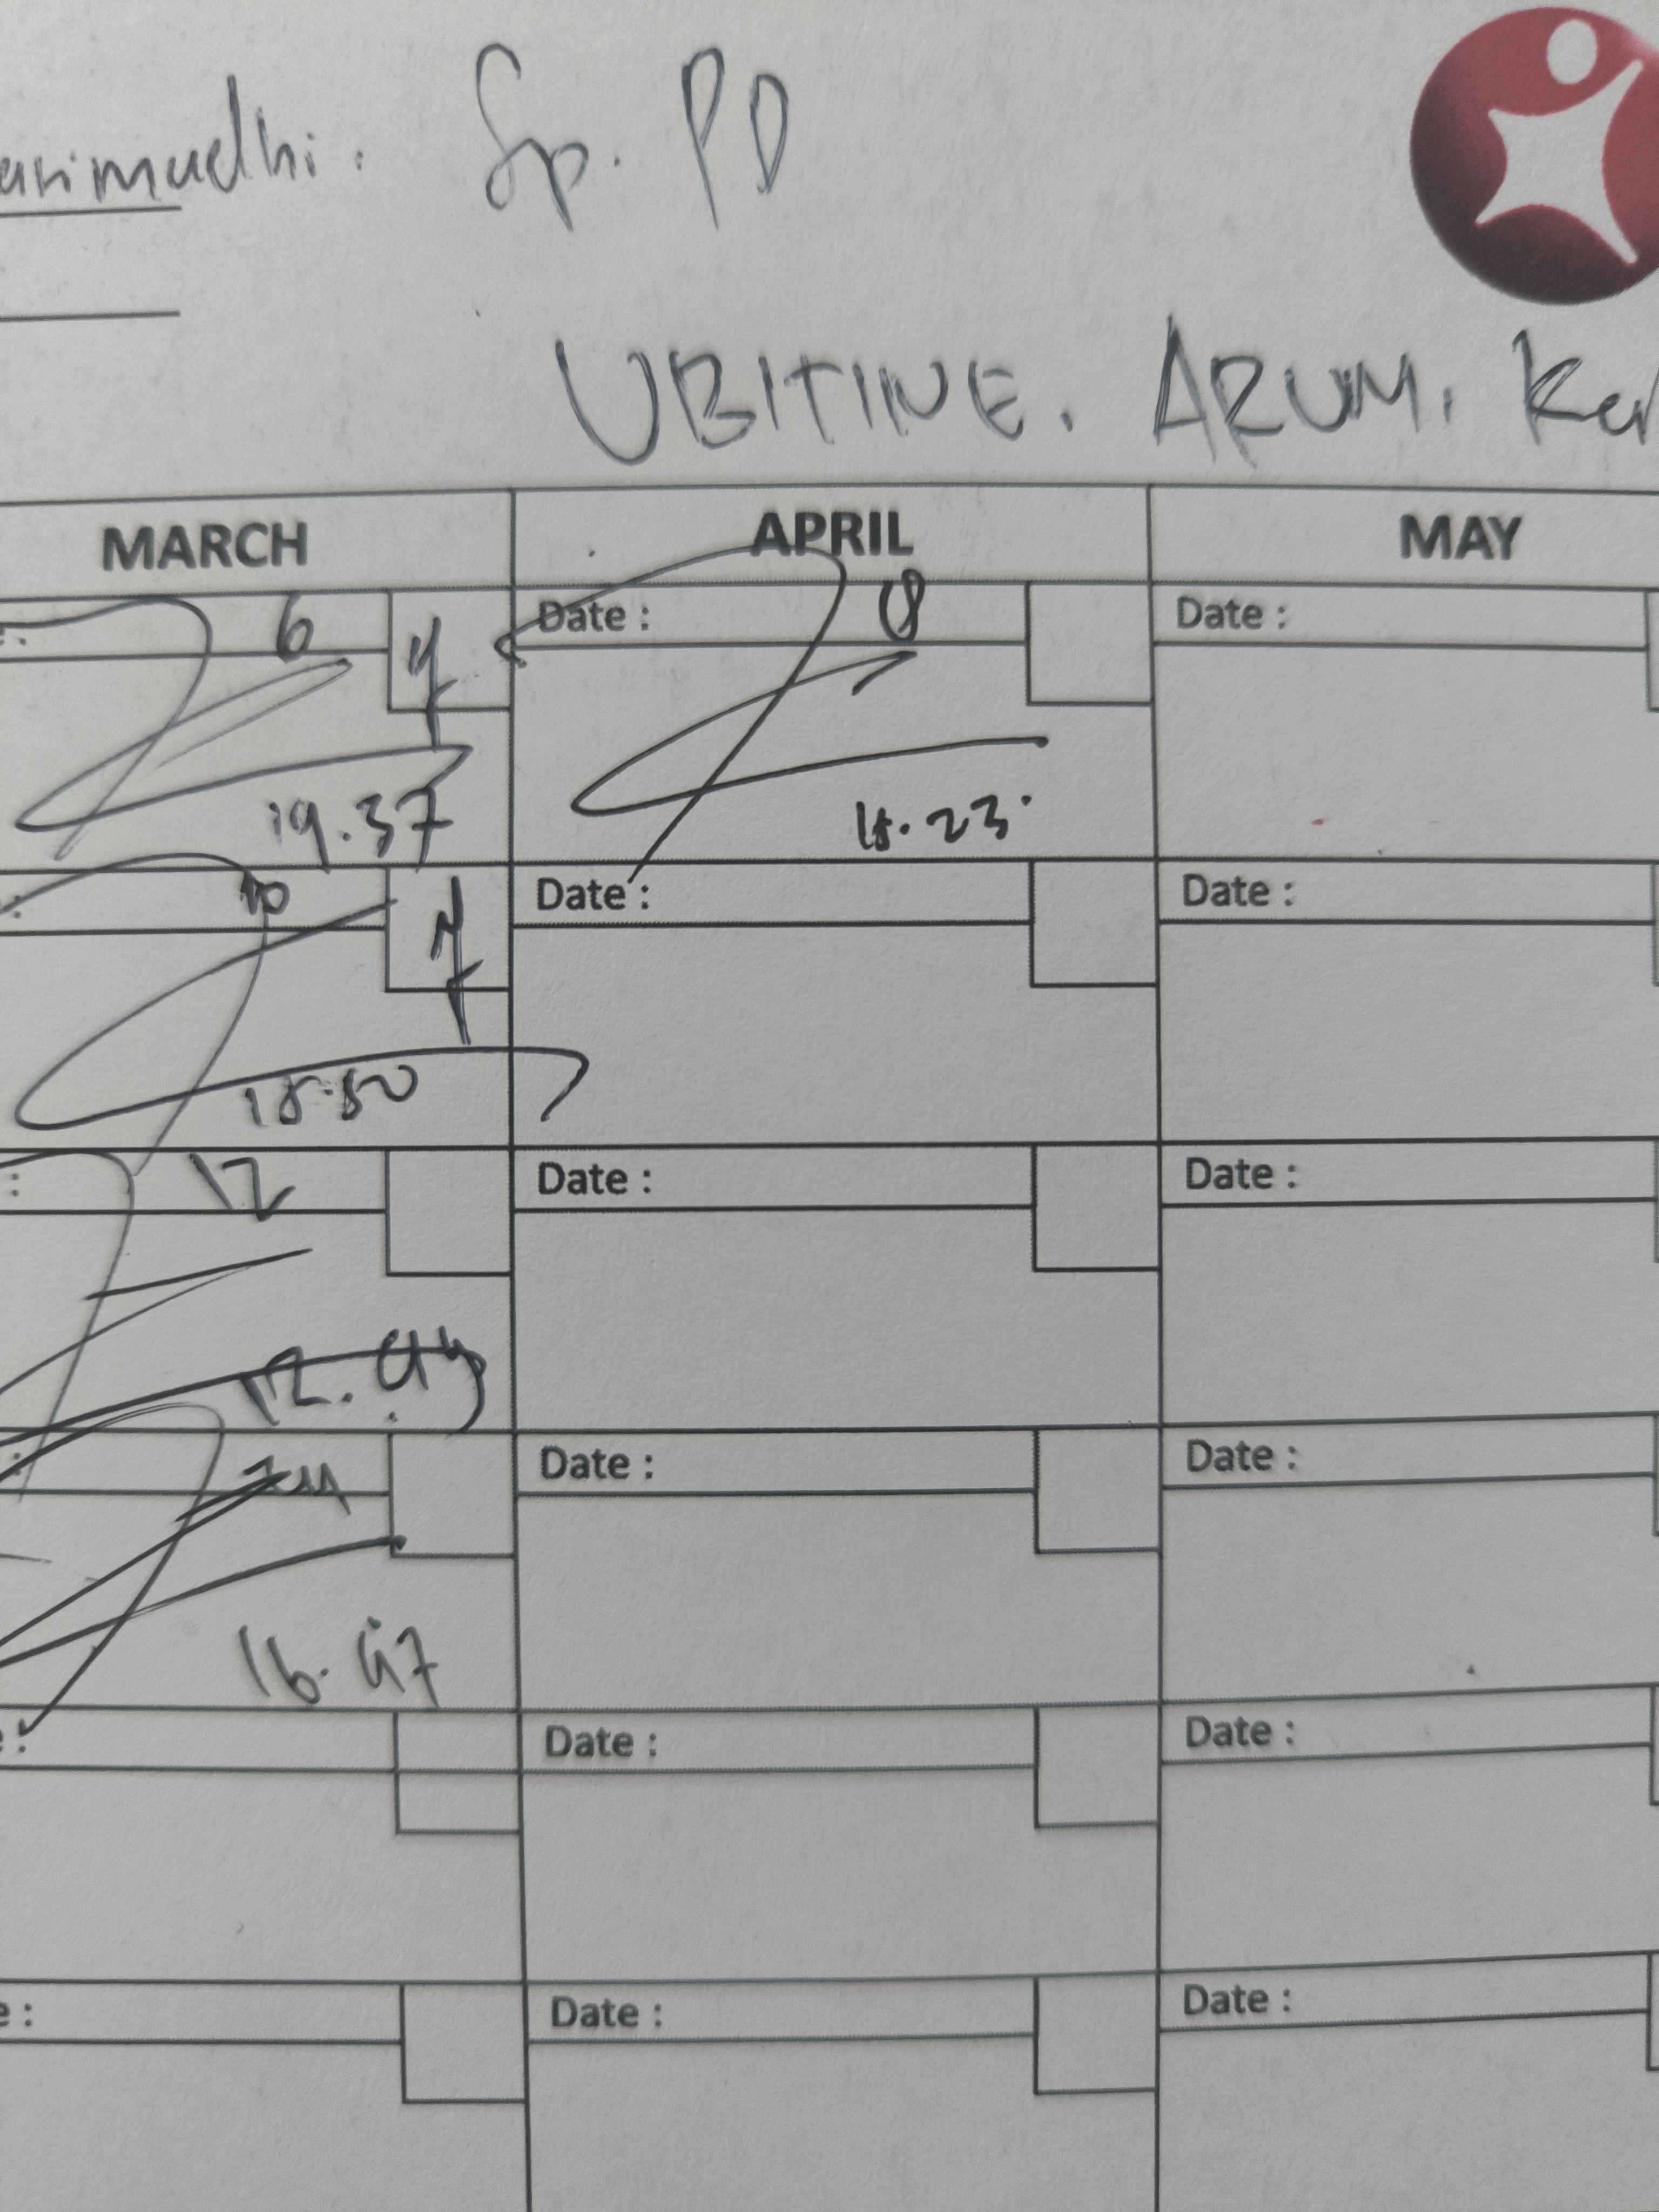 arimudhi. Sp. PD
UBITINE. ARUM. Ker
MARCH APRIL MAY
6 Date : 8 Date :
19.37 18.23
10 Date : Date :
18.50
: 12 Date : Date :
12.49
24 Date : Date :
16.47
e : Date : Date :
e : Date : Date :